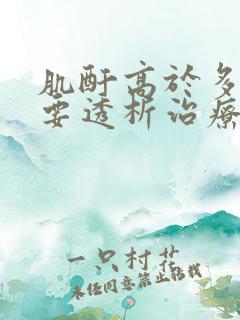 肌酐高於多
要透析治療
一只村花
未经同意禁止转载